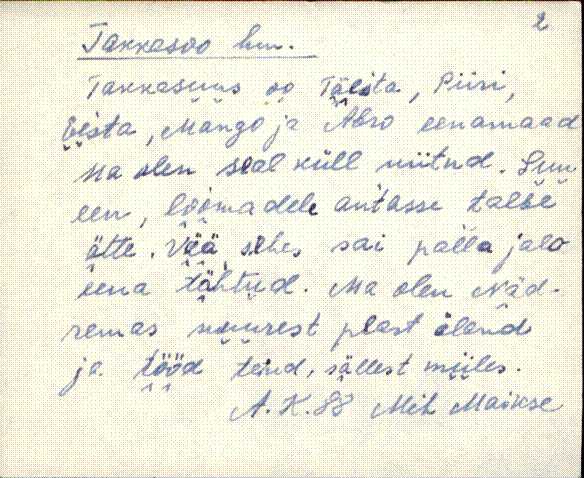 2
Takkasoo hm.
Takkasuus oo Täista, Piiri,
Eista, Mango ja Abro eenamaad
Ma olen seal küll niitnd. Suu
een, loomadele antasse talse
ätte. Vää sehes sai palla jalo
eena tähtud. Ma olen Näd-
remas nuurest peast oland
ja tööd teind, sällest miiles.
A. K. 88 Mih Maikse